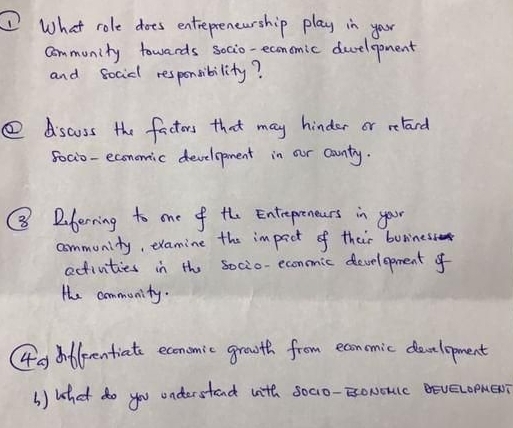 ① What role does entrepreneurship play in your
Community towards Socio-economic development
and Social responsibility?
② Discuss the factors that may hinder or retard
Socio-economic development in our County.
③ Referring to one of the Entrepreneurs in your
Community, examine the impact of their business
activities in the Socio-economic development of
the community.
④a) Differentiate economic growth from economic development
b) What do you understand with SOCIO-ECONOMIC DEVELOPMENT